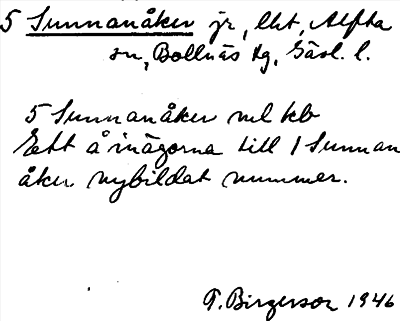 5 Sunnanåker jr, lht, Alfta
sn, Bollnäs tg, Gävl. l.
5 Sunnanåker nl kb
Ett å inägorna till 1 Sunnan
åker nybildat nummer.
T. Birgerson 1946